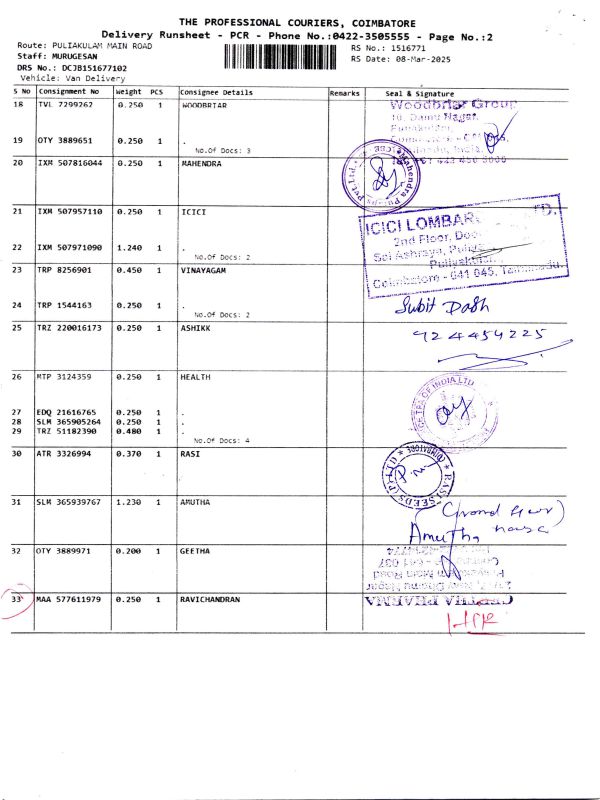 THE PROFESSIONAL COURIERS, COIMBATORE
Delivery Runsheet - PCR - Phone No.:0422-3505555 - Page No.:2
Route: PULIAKULAM MAIN ROAD RS No.: 1516771
Staff: MURUGESAN RS Date: 08-Mar-2025
DRS No.: DCJB151677102
Vehicle: Van Delivery
S No Consignment No Weight PCS Consignee Details Remarks Seal & Signature
18 TVL 7299262 0.250 1 WOODBRIAR
Woodbriar Group
19 OTY 3889651 0.250 1 .
No.Of Docs: 3
20 IXM 507816044 0.250 1 MAHENDRA
21 IXM 507957110 0.250 1 ICICI
ICICI LOMBAR
2nd Floor,
22 IXM 507971090 1.240 1 .
No.Of Docs: 2
Coimbatore - 641 045,
23 TRP 8256901 0.450 1 VINAYAGAM
24 TRP 1544163 0.250 1 .
No.Of Docs: 2
Subit Dash
25 TRZ 220016173 0.250 1 ASHIKK
924454225
26 MTP 3124359 0.250 1 HEALTH
27 EDQ 21616765 0.250 1 .
28 SLM 365905264 0.250 1 .
29 TRZ 51182390 0.480 1 .
No.Of Docs: 4
30 ATR 3326994 0.370 1 RASI
RASI SEEDS (P) LTD
31 SLM 365939767 1.230 1 AMUTHA
Amutha
32 OTY 3889971 0.200 1 GEETHA
33 MAA 577611979 0.250 1 RAVICHANDRAN
GEETHA PHARMA